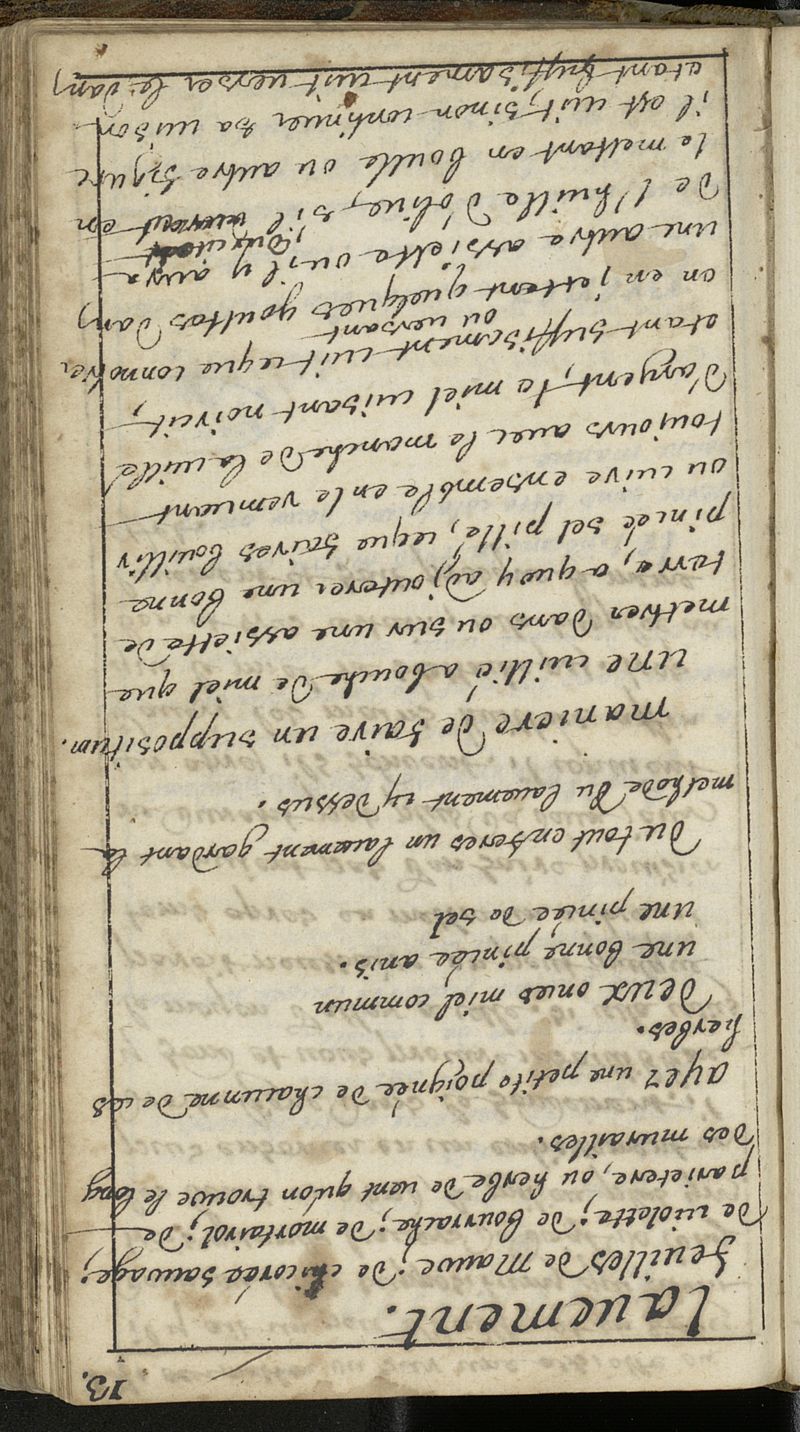 13.
lauement.
feuilles de Mauve; de chicorée sauvage;
de uiolette; de bourrache; de mortairol; de
parietere, ou herbe de uent qu'on trouve le long
des murailles.
ayez une petite poignée de chaiunne de ces
herbes.
Deux onces miel commun
une bonne pincée anis.
une pincée de sel
Du tout enferes un lauement gardant la
methode du lauement cy dessus.
maniere de faire un suppositum.
une cuillié a bouche de miel que
mettres dans ou sur une assiette de
terre, a quoy adjouteres une bonne
pincée sel pillé, ceque faires bouillir
ou cuire ensemble en le remuant
toujours avec le manche de la cuillé
d'argent, le miel cuisant noircit,
etant suffisament cuit ceque connoitres
ou versant
on en jettant quelques gouttes dans
une autre assiette ou il y aura
de l'huille d'olive, s'il durcit en
le mettant en boule ou autre figure
il est cuit, sinon continuer sa cuison
etant suffisament cuit verser le dans